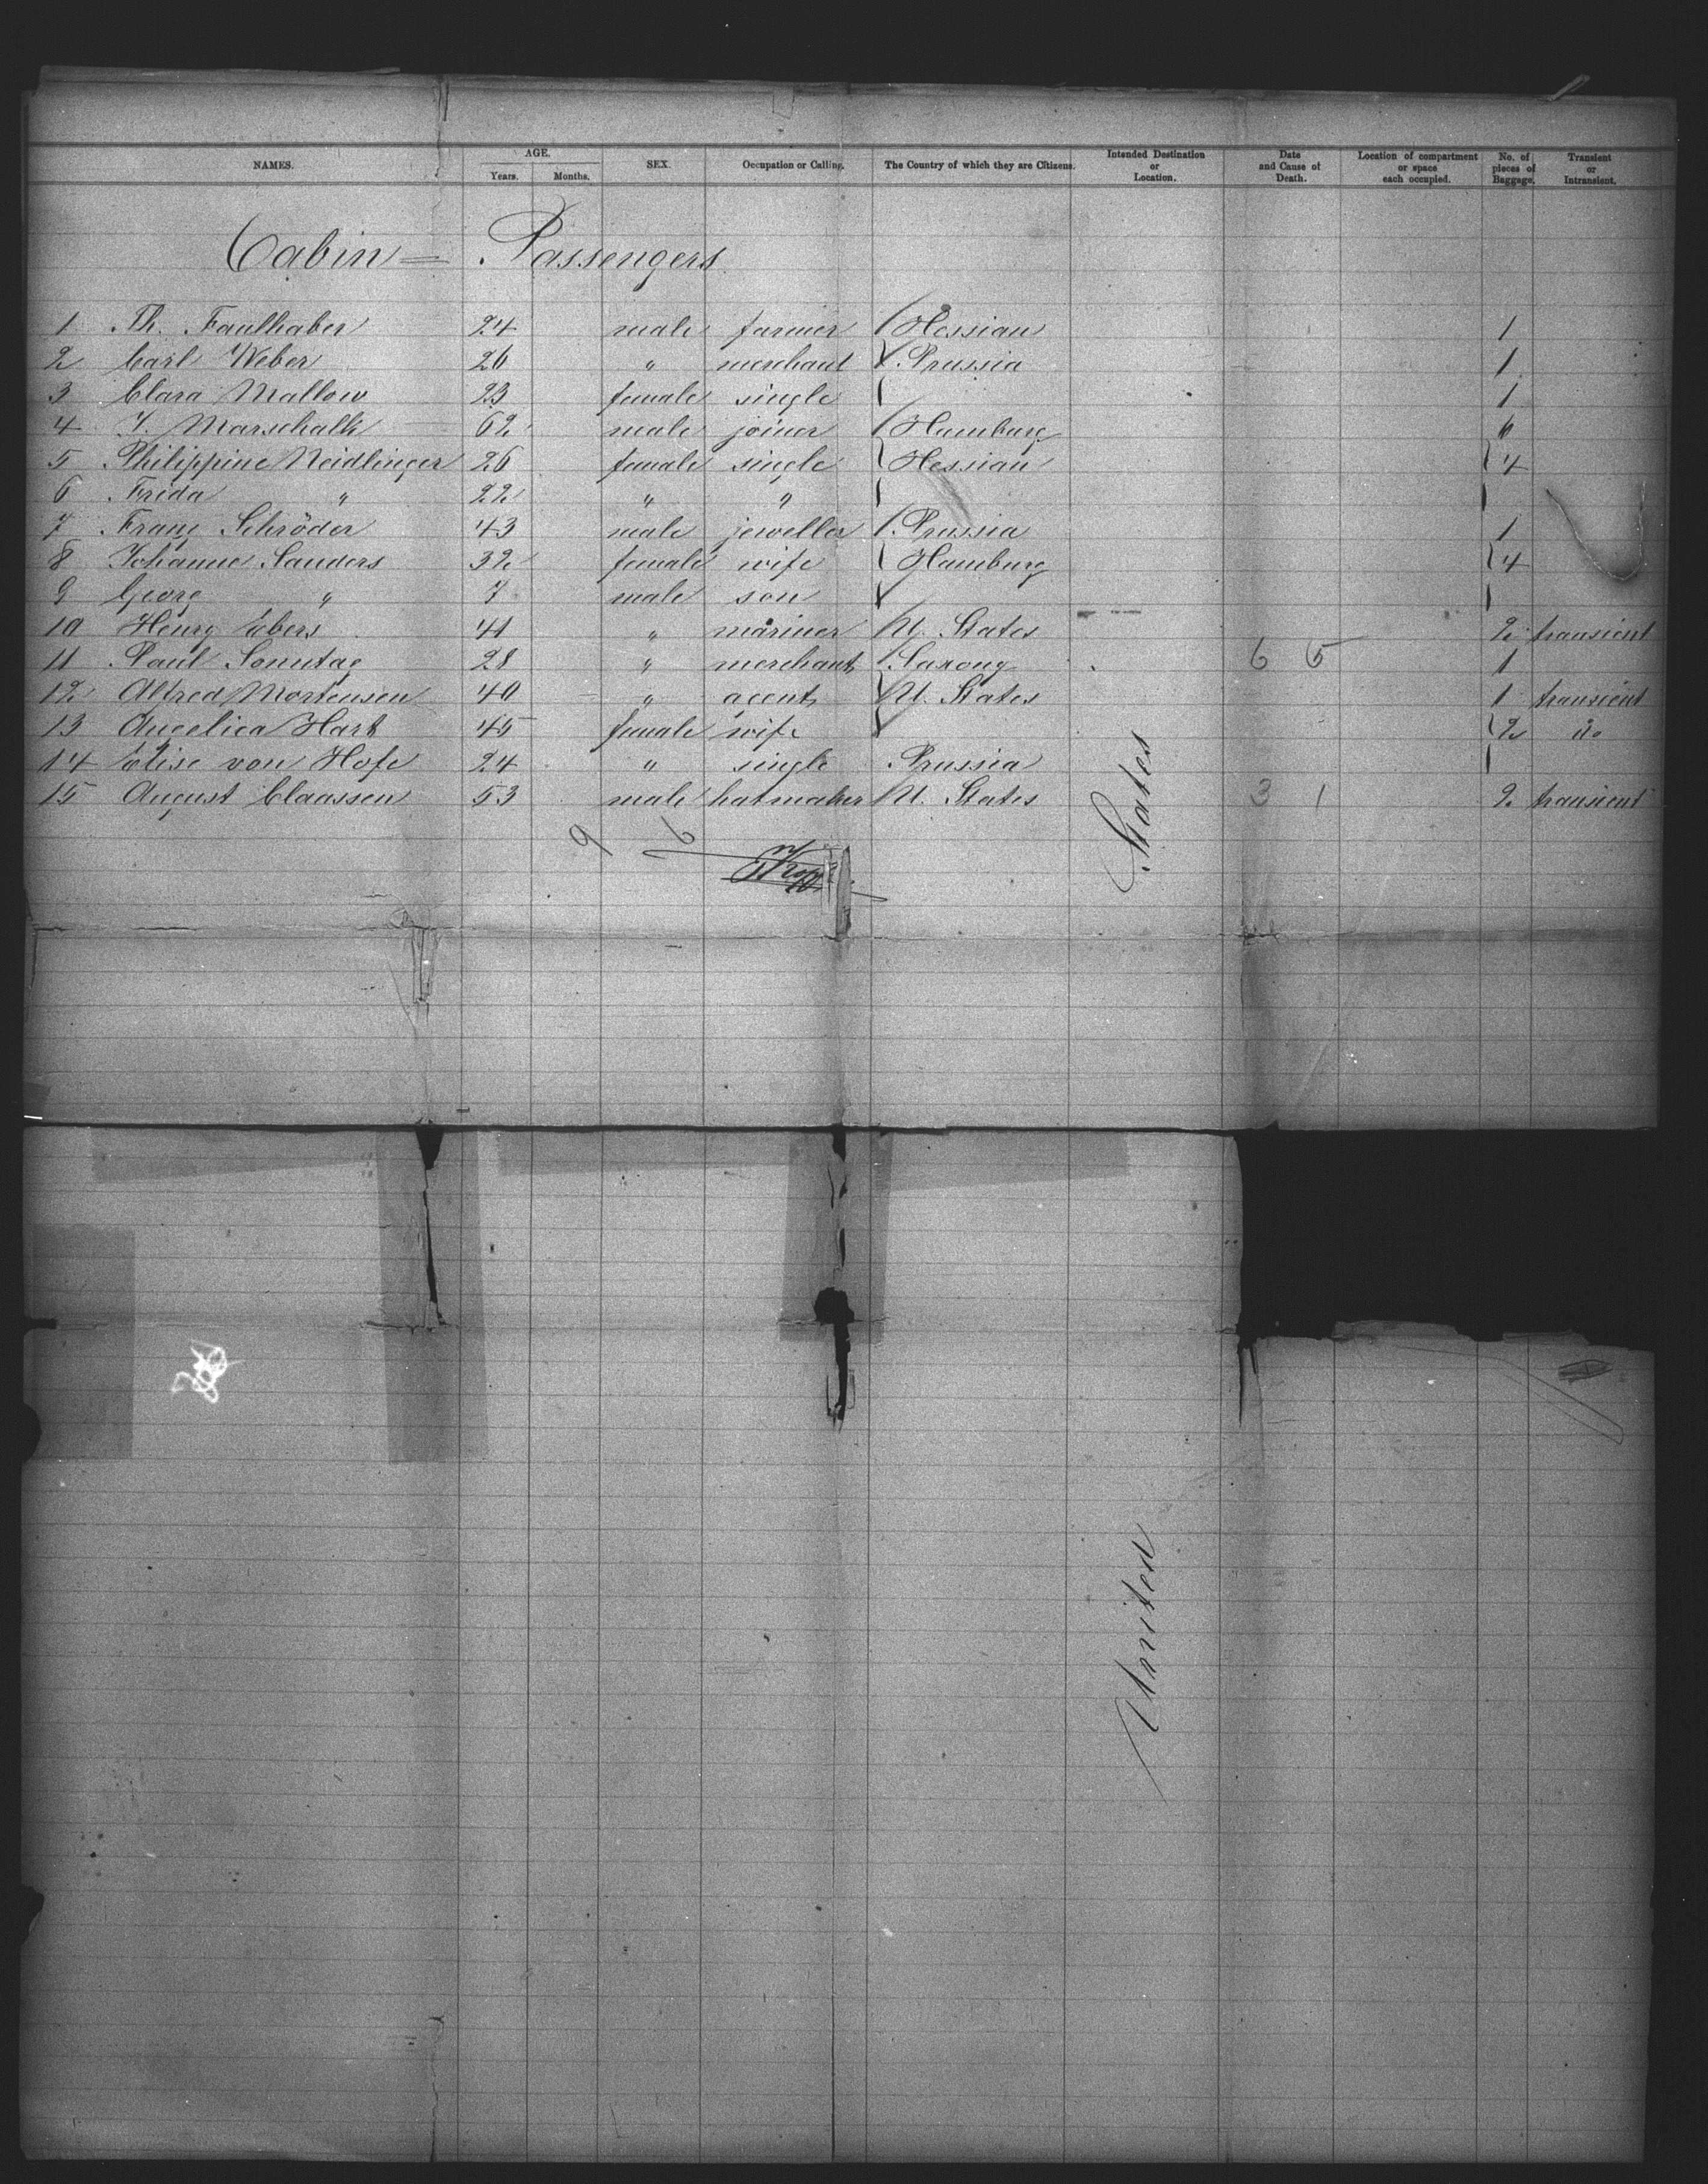 NAMES. AGE. Years. Months. SEX. Occupation or Calling. The Country of which they are Citizens. Intended Destination or Location. Date and Cause of Death. Location of compartment or space each occupied. No. of pieces of Baggage. Transient or Intransient.
Cabin = Passengers
1 Th. Faulhaber 24 male farmer Hessian 1
2 Carl Weber 26 " merchant Prussia 1
3 Clara Mallow 23 female single 1
4 J. Marschalk 62 male joiner Hamburg
5 Philippine Neidlinger 26 female single Hessian 4
6 Frida " 22 " "
7 Franz Schröder 43 male jeweller Prussia 1
8 Johanne Sanders 32 female wife Hamburg 4
9 Georg " 7 male son
10 Henry Ebers 41 " mariner U. States 2 transient
11 Paul Sonntag 28 " merchant Saxony 6 5 1
12 Alfred Mortensen 40 " agent U. States 1 transient
13 Angelica Hart 45 female wife 2 do
14 Elise von Hofe 24 " single Prussia
15 August Claassen 53 male hatmaker U. States 3 1 2 transient
9 6
United States